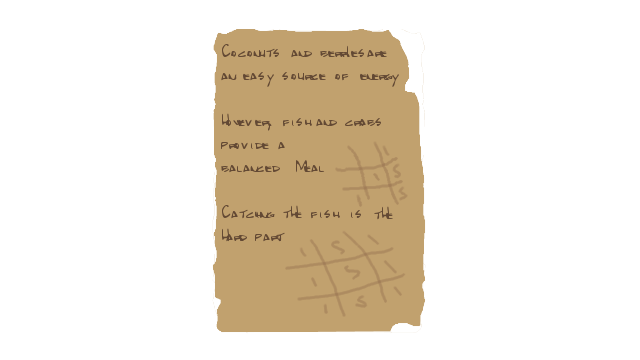 Coconuts and berries are
an easy source of energy
However, fish and crabs
provide a
balanced Meal
Catching the fish is the
hard part